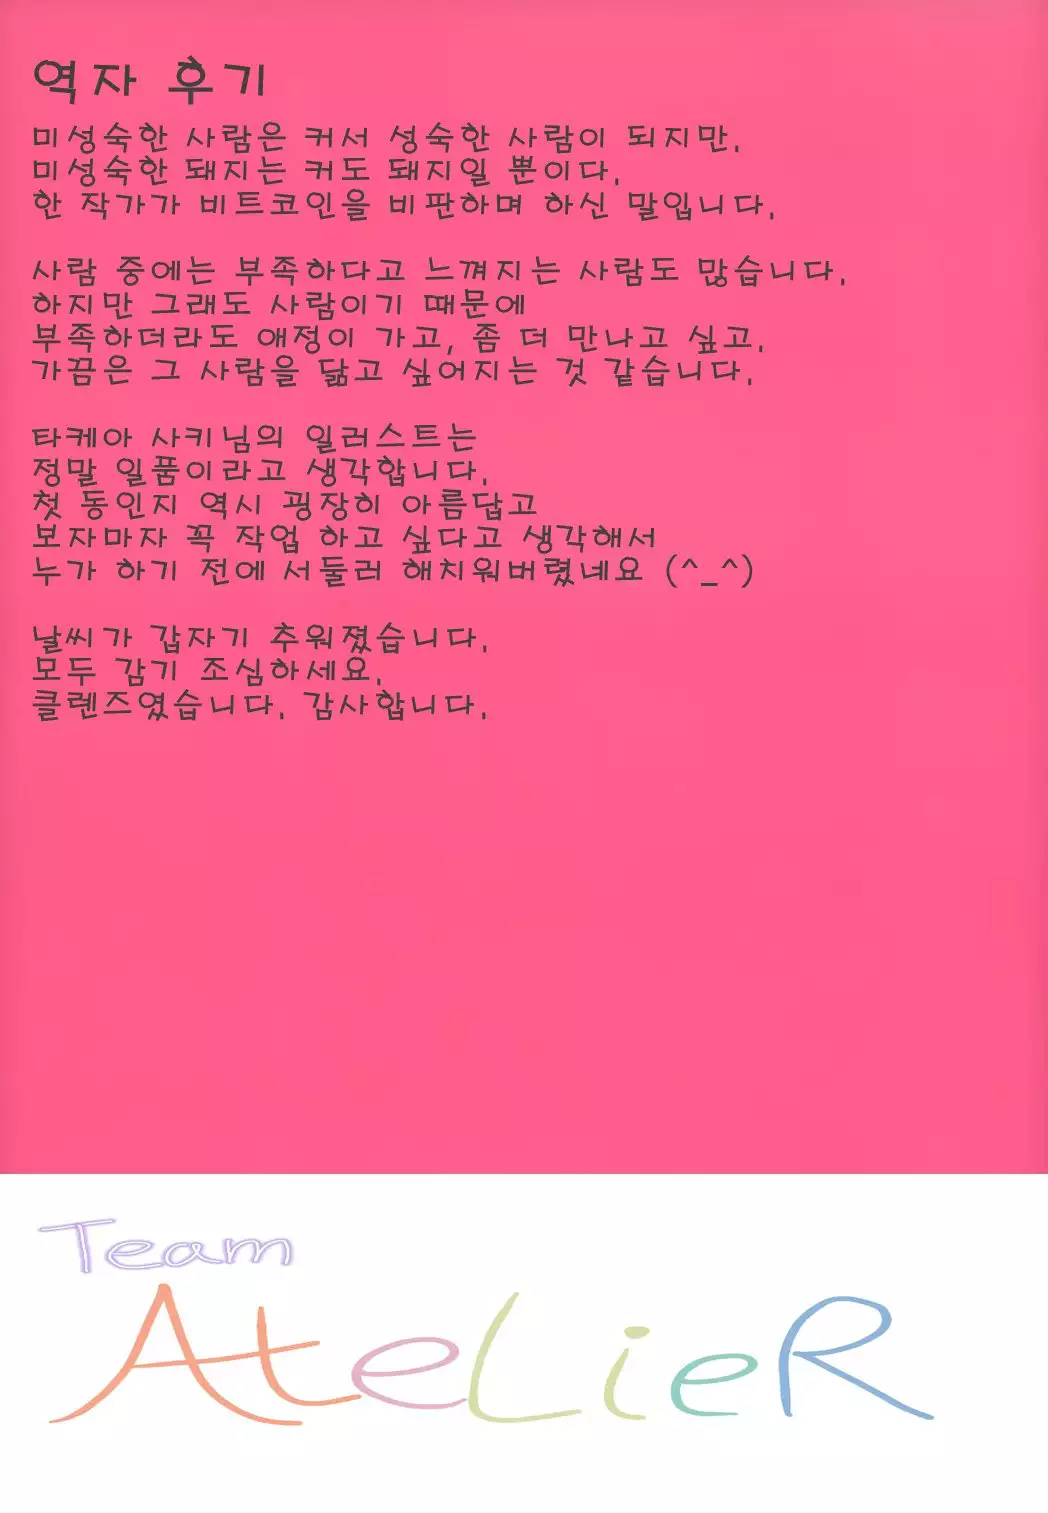 역자 후기
미성숙한 사람은 커서 성숙한 사람이 되지만,
미성숙한 돼지는 커도 돼지일 뿐이다.
한 작가가 비트코인을 비판하며 하신 말입니다.
사람 중에는 부족하다고 느껴지는 사람도 많습니다.
하지만 그래도 사람이기 때문에
부족하더라도 애정이 가고, 좀 더 만나고 싶고,
가끔은 그 사람을 닮고 싶어지는 것 같습니다.
타케아 사키님의 일러스트는
정말 일품이라고 생각합니다.
첫 동인지 역시 굉장히 아름답고
보자마자 꼭 작업 하고 싶다고 생각해서
누가 하기 전에 서둘러 해치워버렸네요 (^_^)
날씨가 갑자기 추워졌습니다.
모두 감기 조심하세요.
클렌즈였습니다. 감사합니다.
Team
AteLieR